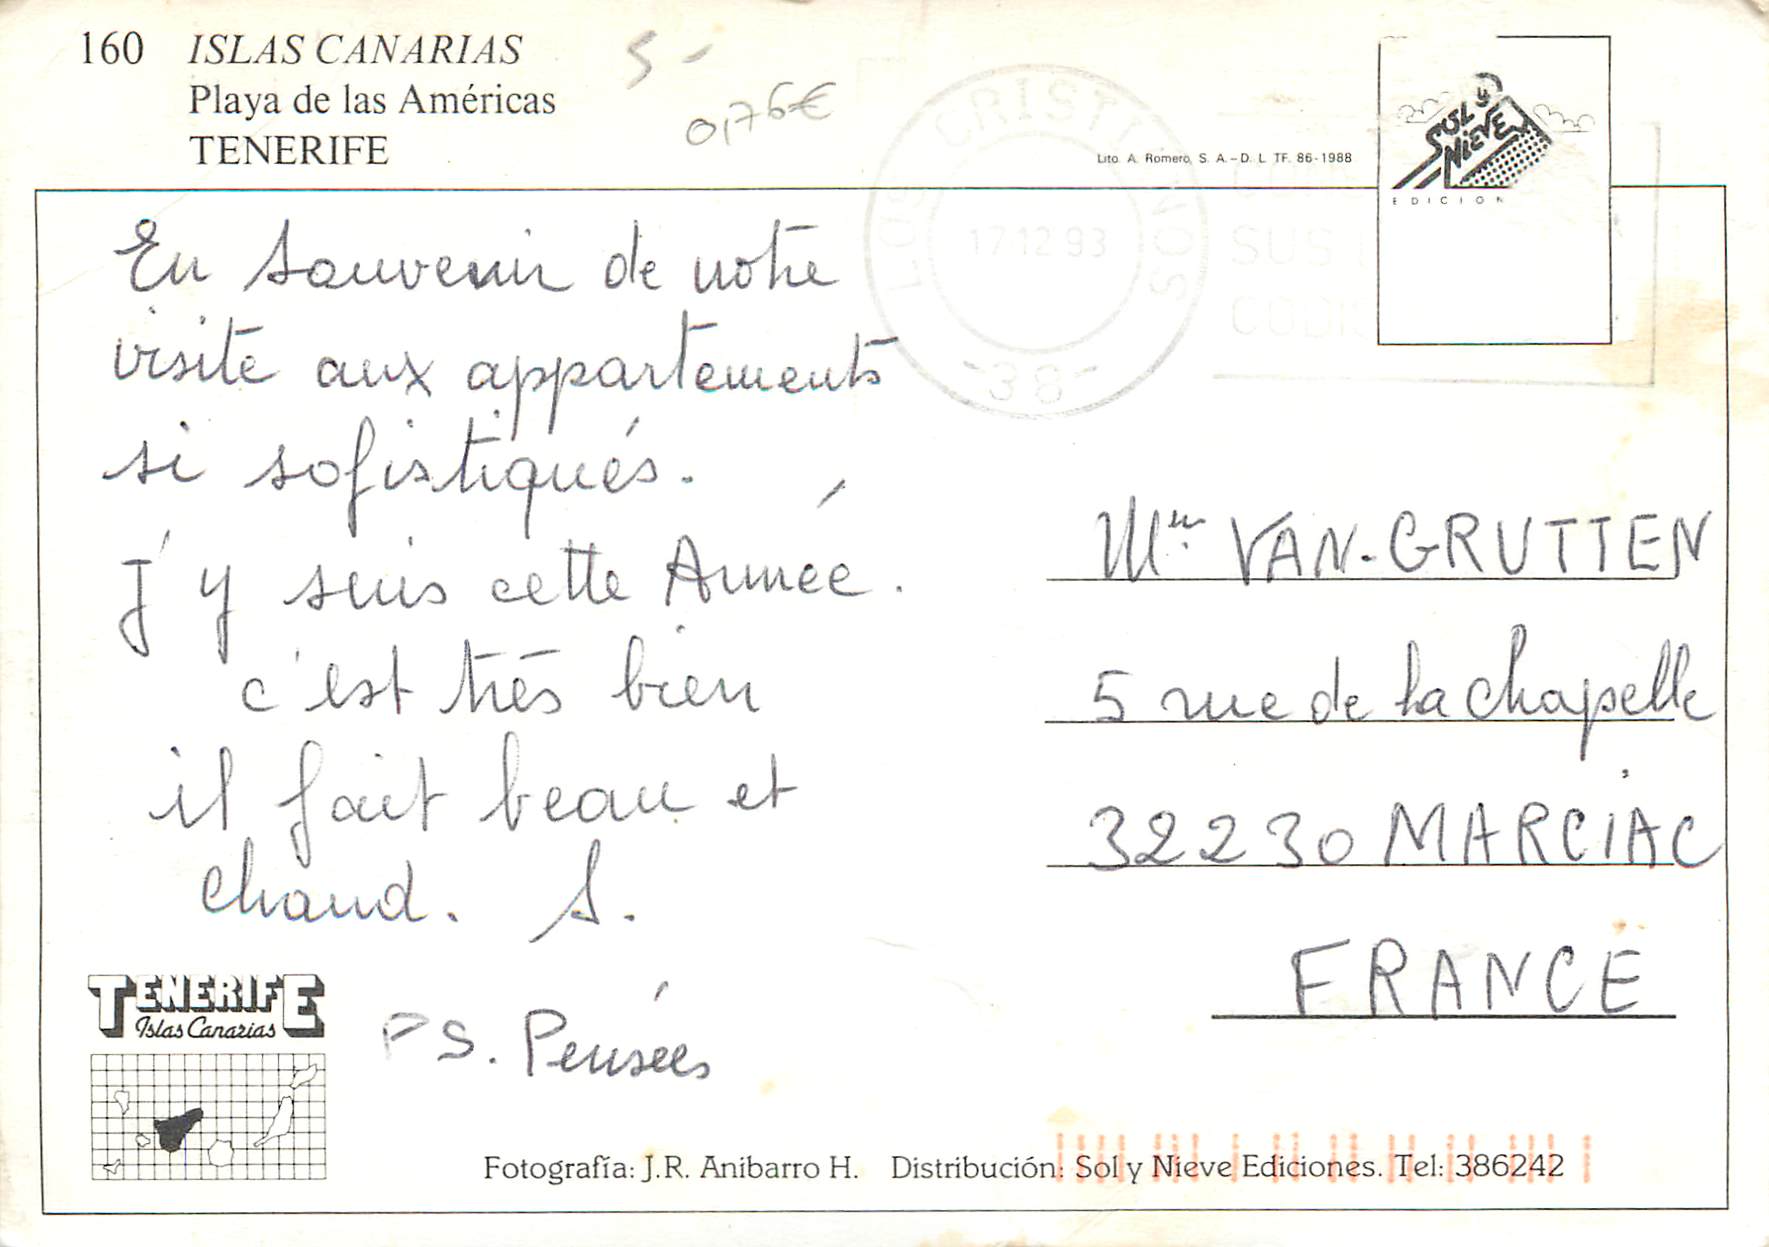 160 ISLAS CANARIAS
Playa de las Américas
TENERIFE
5 -
0,76€
LOS CRISTIANOS
17 12 93
-38-
SUS
Lito. A. Romero, S. A.-D. L. TF. 86-1988
SOL y NIEVE
EDICION
En souvenir de notre
visite aux appartements
si sofistiqués.
J'y suis cette Année.
c'est très bien
il fait beau et
chaud. S.
PS. Pensées
VAN-GRUTTEN
5 rue de la chapelle
32230 MARCIAC
FRANCE
TENERIFE
Islas Canarias
Fotografía: J.R. Anibarro H. Distribución: Sol y Nieve Ediciones. Tel: 386242